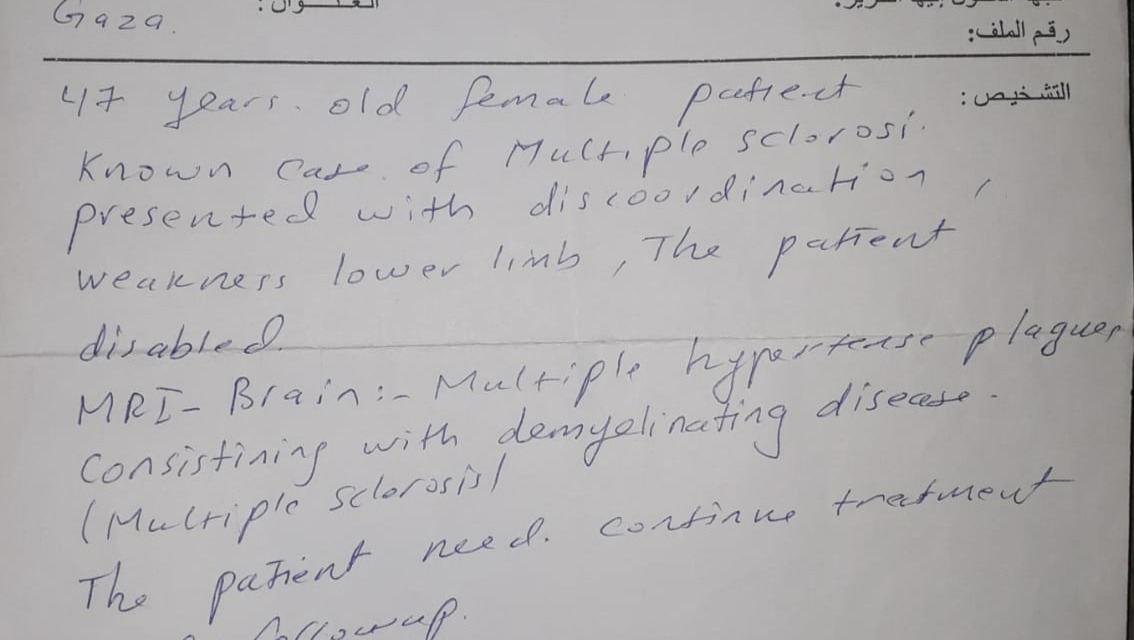 Gaza. العنوان :
رقم الملف:
التشخيص :
47 years. old female patient
Known case. of Multiple sclorosi.
presented with discoordination ,
weakness lower limb , The patient
disabled.
MRI- Brain:- Multiple hypertense plaques
Consistining with demyelinating disease.
(Multiple sclorosis)
The patient need. continue treatment
followup.